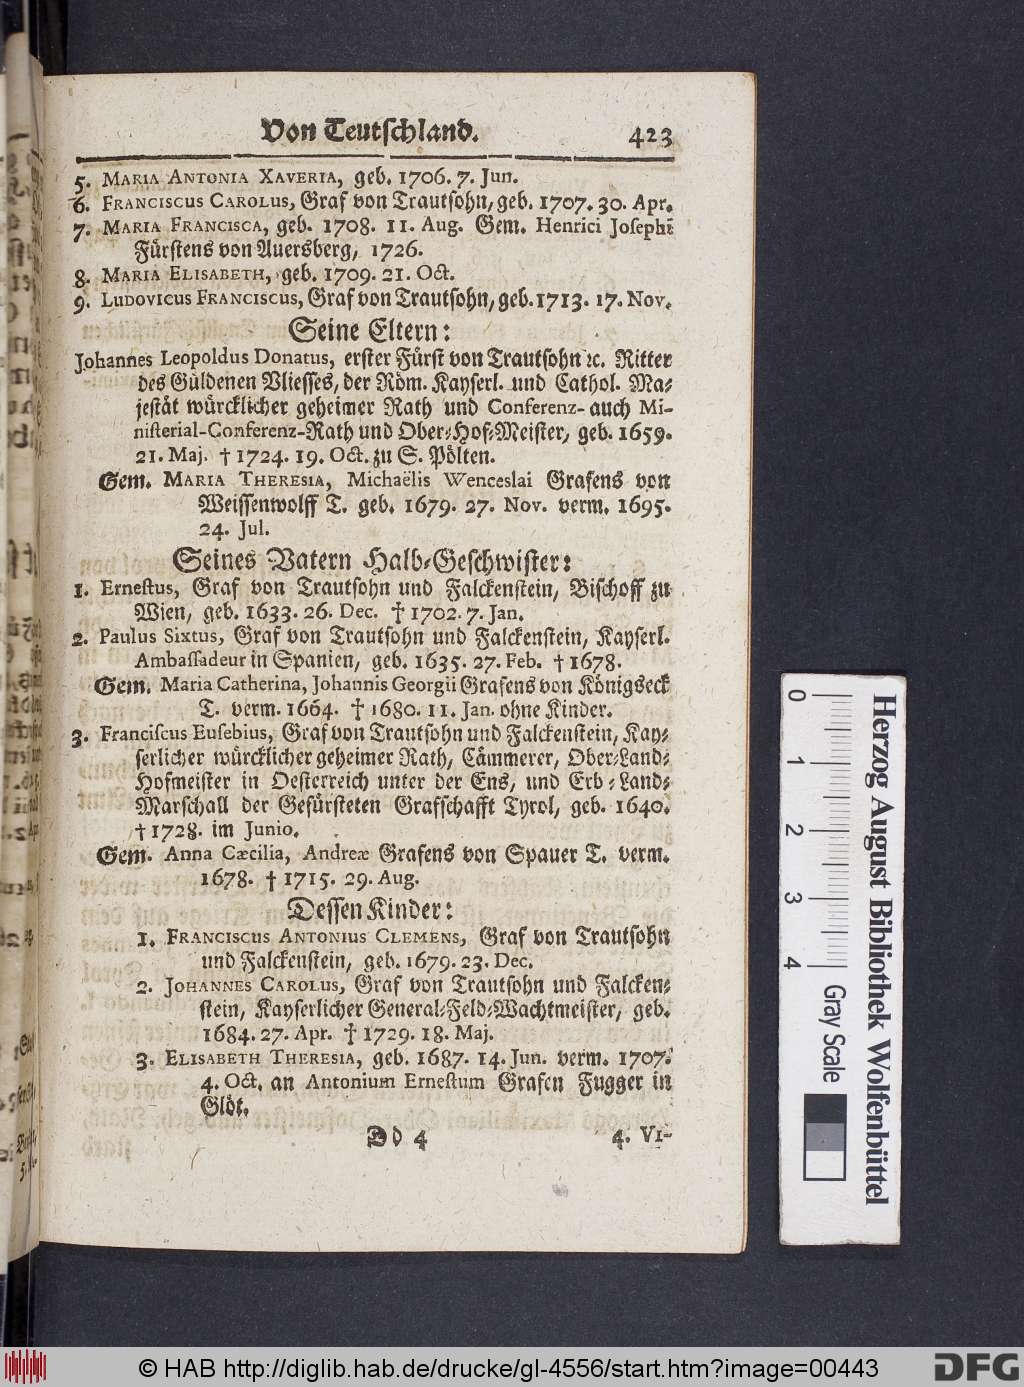 Von Teutschland. 423
5. MARIA ANTONIA XAVERIA, geb. 1706. 7. Jun.
6. FRANCISCUS CAROLUS, Graf von Trautsohn, geb. 1707. 30. Apr.
7. MARIA FRANCISCA, geb. 1708. 11. Aug. Gem. Henrici Josephi
Fürstens von Auersberg, 1726.
8. MARIA ELISABETH, geb. 1709. 21. Oct.
9. LUDOVICUS FRANCISCUS, Graf von Trautsohn, geb. 1713. 17. Nov.
Seine Eltern:
Johannes Leopoldus Donatus, erster Fürst von Trautsohn ꝛc. Ritter
des Güldenen Vliesses, der Röm. Kayserl. und Cathol. Ma-
jestät würcklicher geheimer Rath und Conferenz- auch Mi-
nisterial-Conferenz-Rath und Ober-Hof-Meister, geb. 1659.
21. Maj. † 1724. 19. Oct. zu S. Pölten.
Gem. MARIA THERESIA, Michaëlis Wenceslai Grafens von
Weissenwolff T. geb. 1679. 27. Nov. verm. 1695.
24. Jul.
Seines Vatern Halb-Geschwister:
1. Ernestus, Graf von Trautsohn und Falckenstein, Bischoff zu
Wien, geb. 1633. 26. Dec. † 1702. 7. Jan.
2. Paulus Sixtus, Graf von Trautsohn und Falckenstein, Kayserl.
Ambassadeur in Spanien, geb. 1635. 27. Feb. † 1678.
Gem. Maria Catherina, Johannis Georgii Grafens von Königseck
T. verm. 1664. † 1680. 11. Jan. ohne Kinder.
3. Franciscus Eusebius, Graf von Trautsohn und Falckenstein, Kay-
serlicher würcklicher geheimer Rath, Cämmerer, Ober-Land-
Hofmeister in Oesterreich unter der Ens, und Erb-Land-
Marschall der Gefürsteten Grafschafft Tyrol, geb. 1640.
† 1728. im Junio.
Gem. Anna Cæcilia, Andreæ Grafens von Spauer T. verm.
1678. † 1715. 29. Aug.
Dessen Kinder:
1. FRANCISCUS ANTONIUS CLEMENS, Graf von Trautsohn
und Falckenstein, geb. 1679. 23. Dec.
2. JOHANNES CAROLUS, Graf von Trautsohn und Falcken-
stein, Kayserlicher General-Feld-Wachtmeister, geb.
1684. 27. Apr. † 1729. 18. Maj.
3. ELISABETH THERESIA, geb. 1687. 14. Jun. verm. 1707.
4. Oct. an Antonium Ernestum Grafen Fugger in
Glöt.
Dd 4 4. VI-
0 1 2 3 4 Gray Scale
Herzog August Bibliothek Wolfenbüttel
© HAB http://diglib.hab.de/drucke/gl-4556/start.htm?image=00443
DFG